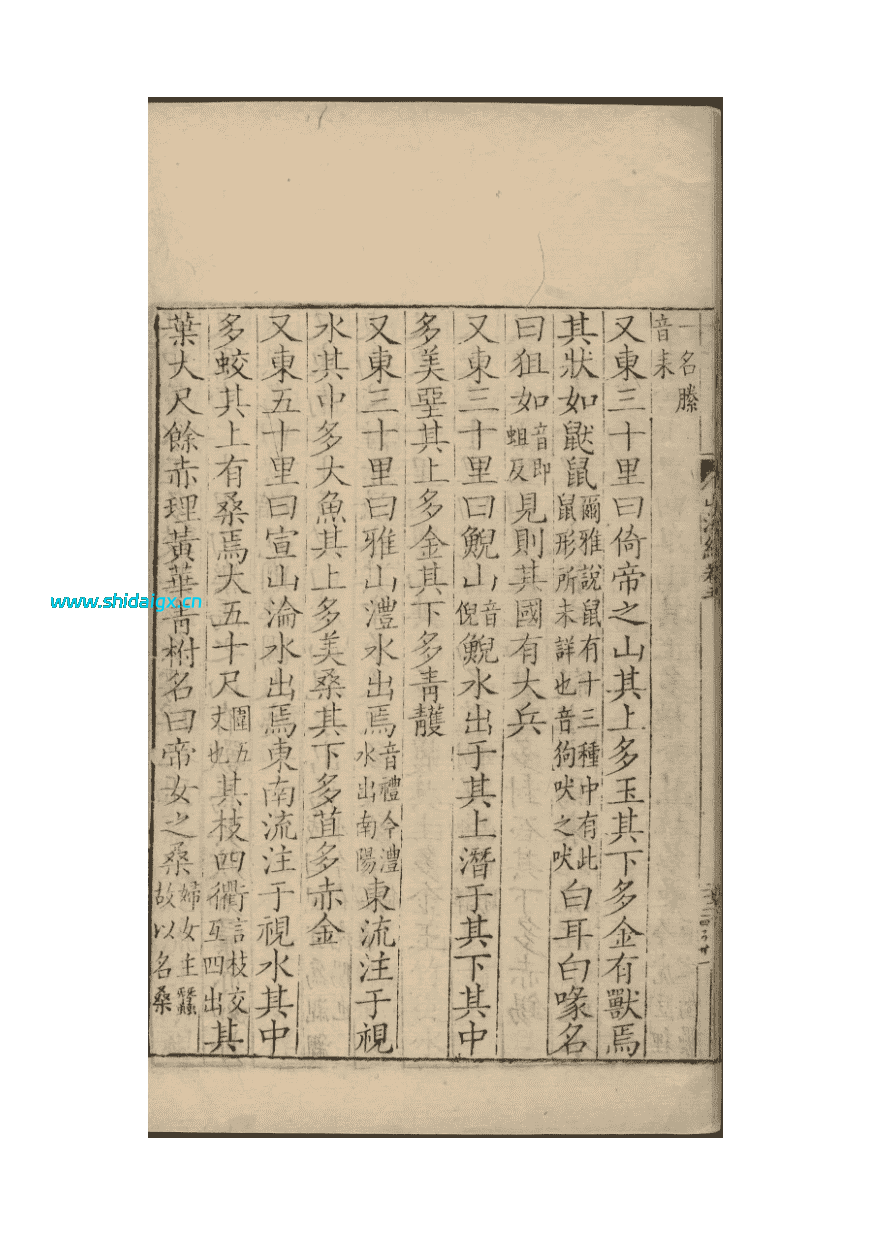 一名㯲
音未
又東三十里曰倚帝之山其上多玉其下多金有獸焉
其狀如鼣鼠爾雅說鼠有十三種中有此鼠形所未詳也音狗吠之吠白耳白喙名
曰狙如音即蛆反見則其國有大兵
又東三十里曰鯢山音倪鯢水出于其上潛于其下其中
多美堊其上多金其下多青雘
又東三十里曰雅山澧水出焉音禮今澧水出南陽東流注于視
水其中多大魚其上多美桑其下多苴多赤金
又東五十里曰宣山淪水出焉東南流注于視水其中
多蛟其上有桑焉大五十尺圍五丈也其枝四衢言枝交互四出其
葉大尺餘赤理黃華青柎名曰帝女之桑婦女主蠶故以名桑
www.shidaigx.cn